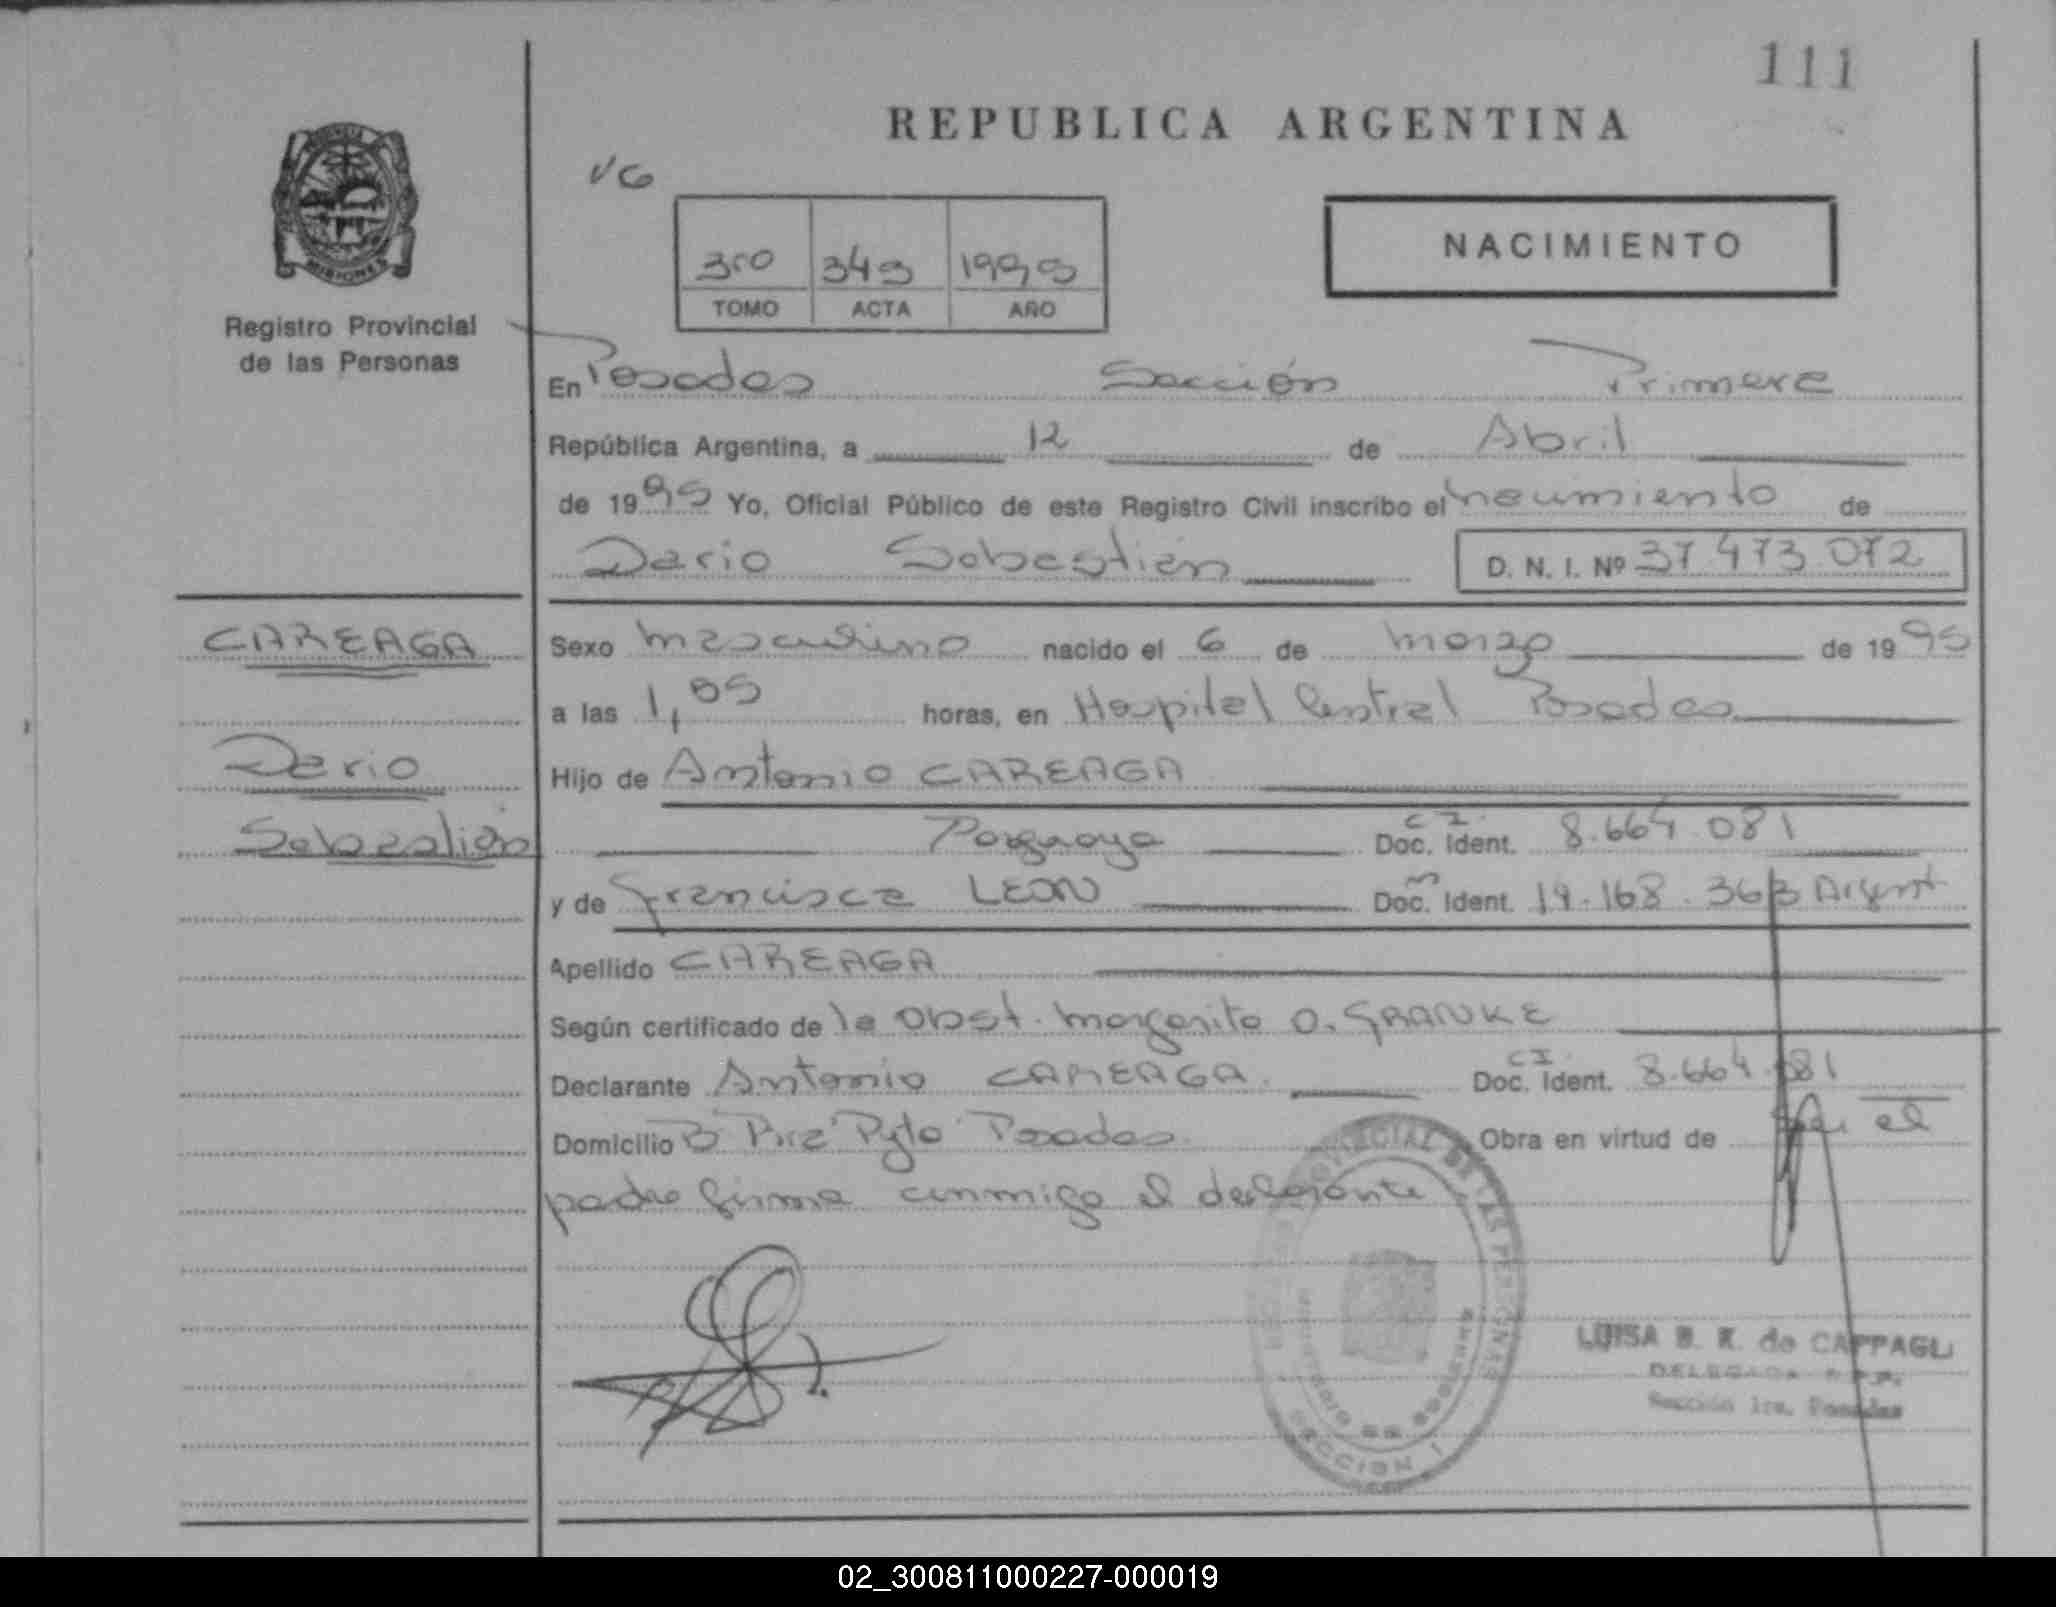 111
REPUBLICA ARGENTINA
VG
3ro 349 1995
TOMO ACTA AÑO
NACIMIENTO
MISIONES
Registro Provincial
de las Personas
En Posadas Sección Primera
República Argentina, a 12 de Abril
de 1995 Yo, Oficial Público de este Registro Civil inscribo el nacimiento de
Dario Sebastián D. N. I. Nº 37.473.072
CAREAGA
Sexo masculino nacido el 6 de marzo de 1995
a las 1,05 horas, en Hospital Central Posadas
Dario
Hijo de Antonio CAREAGA
Sebastián
Paraguaya C I. Doc. Ident. 8.664.081
y de Francisca LEON Doc. Ident. 14.168.363 Argent
Apellido CAREAGA
Según certificado de la Obst. Margarita O. GRANKE
Declarante Antonio CAREAGA. CI. Doc. Ident. 8.664.081
Domicilio Bº Posadas. Obra en virtud de ser el
padre firma conmigo el declarante
PROVINCIAL DE LAS PERSONAS
MINISTERIO DE GOBIERNO
SECCION 1
LUISA B. K. de CAPPAGLI
DELEGADA R.P.P.
Sección 1ra. Posadas
02_300811000227-000019